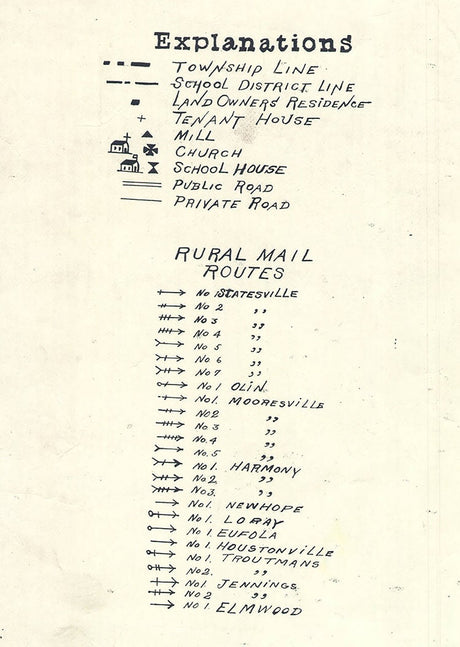 Explanations
TOWNSHIP LINE
SCHOOL DISTRICT LINE
LAND OWNERS RESIDENCE
TENANT HOUSE
MILL
CHURCH
SCHOOL HOUSE
PUBLIC ROAD
PRIVATE ROAD
RURAL MAIL
ROUTES
No 1 STATESVILLE
No 2 ,,
No 3 ,,
No 4 ,,
No 5 ,,
No 6 ,,
No 7 ,,
No 1 OLIN
No 1. MOORESVILLE
No 2 ,,
No 3 ,,
No 4 ,,
No 5 ,,
No 1. HARMONY
No 2. ,,
No 3. ,,
No 1. NEWHOPE
No 1. LORAY
No 1. EUFOLA
No 1. HOUSTONVILLE
No 1. TROUTMANS
No 2. ,,
No 1. JENNINGS
No 2 ,,
No 1 ELMWOOD